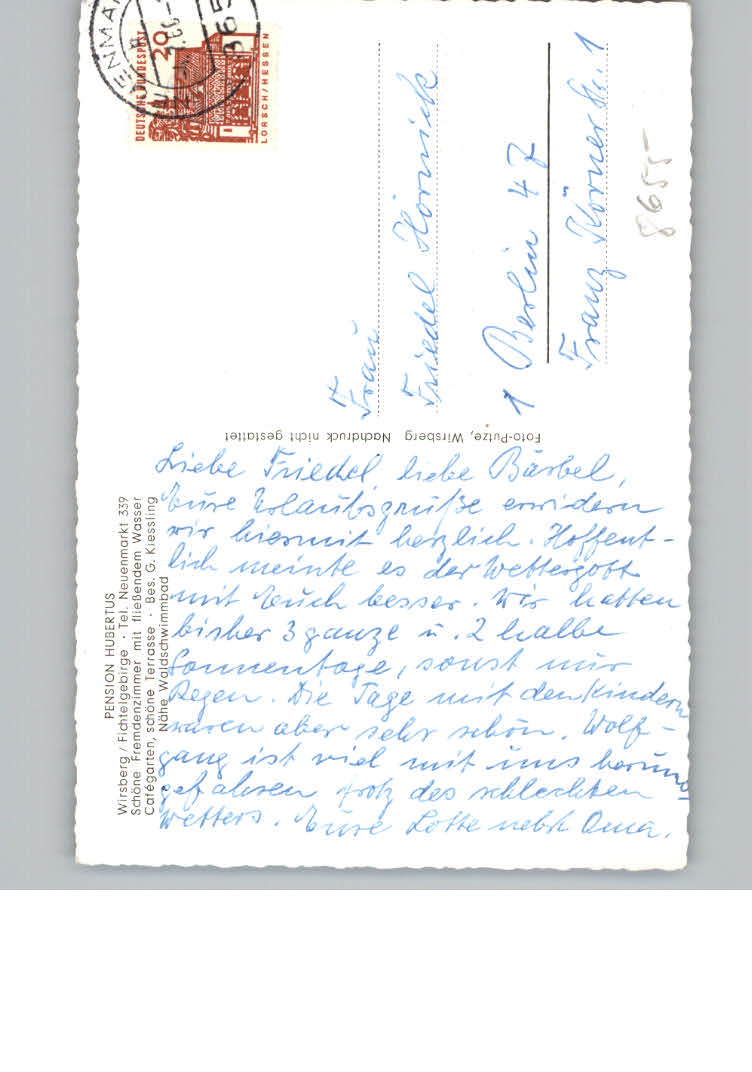 PENSION HUBERTUS
Wirsberg / Fichtelgebirge · Tel. Neuenmarkt 339
Schöne Fremdenzimmer mit fließendem Wasser
Cafégarten, schöne Terrasse · Bes. G. Kiessling
Nähe Waldschwimmbad
Liebe Friedel, liebe Bärbel,
Eure Urlaubsgrüße erwidern
wir hiermit herzlich. Hoffent-
lich meinte es der Wettergott
mit Euch besser. Wir hatten
bisher 3 ganze u. 2 halbe
Sonnentage, sonst nur
Regen. Die Tage mit den Kindern
waren aber sehr schön. Wolf-
gang ist viel mit uns herum-
gefahren trotz des schlechten
Wetters. Eure Lotte nebst Oma.
Foto-Putze, Wirsberg Nachdruck nicht gestattet
DEUTSCHE BUNDESPOST
20
LORSCH/HESSEN
865
Frau
Friedel Hornick
1 Berlin 47
Franz Körner Str. 1
8655